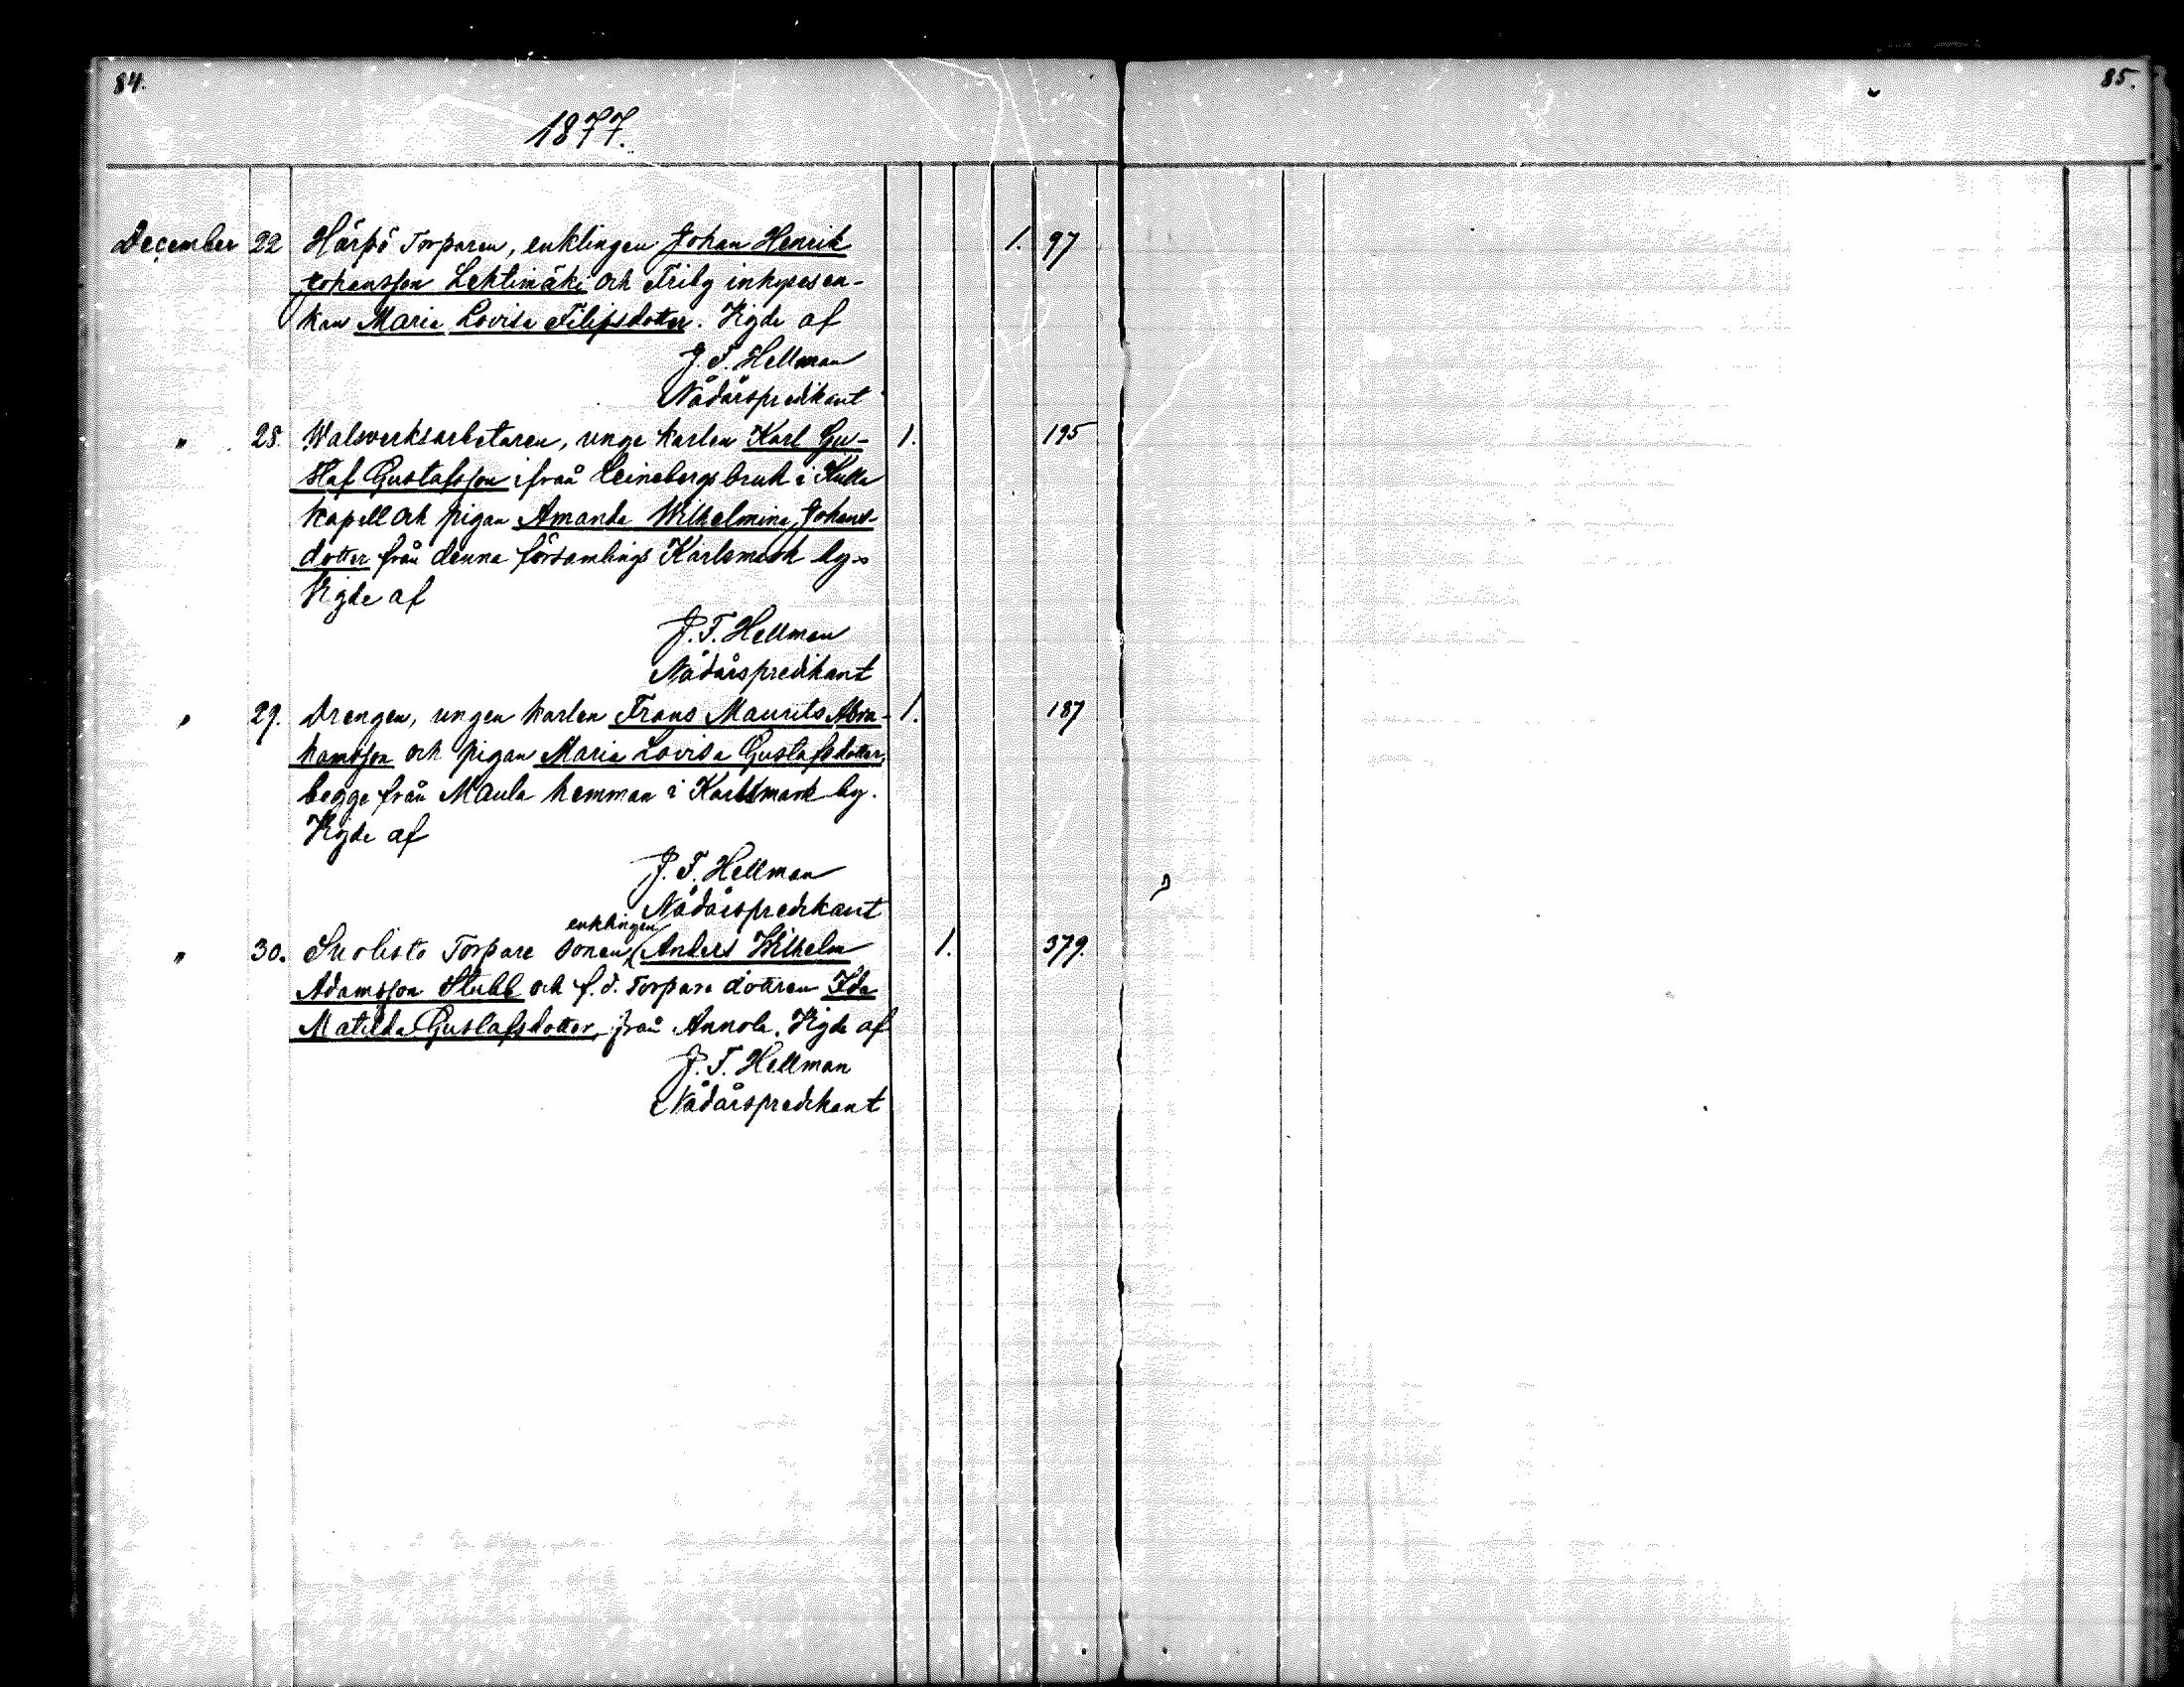 84.
85.
1877.
December 22 Härpö Torparen, enklingen Johan Henrik 1. 97
Johansson Lehtimäki och Friby inhyses en-
kan Maria Lovisa Filipsdotter. Vigde af
J. F. Hellman
Nådårspredikant
" 28. Walsverksarbetaren, unge karlen Karl Gu- 1. 195
staf Gustafsson ifrån Leinebergs bruk i Kulla
kapell och pigan Amanda Wilhelmina Johans-
dotter från denna församlings Karlsmark by.
Vigde af
J. F. Hellman
Nådårspredikant
" 29. Drengen, ungen karlen Frans Maurits Abra- 1. 187
hamsson och pigan Maria Lovisa Gustafsdotter,
begge från Maula hemman i Karlsmark by.
Vigde af
J. F. Hellman
Nådårspredikant
enklingen
" 30. Suolisto Torpare sonen Anders Wilhelm 1. 379.
Adamsson Stubb och f.d. Torpare dottren Ida
Matilda Gustafsdotter, från Annola. Vigde af
J. F. Hellman
Nådårspredikant